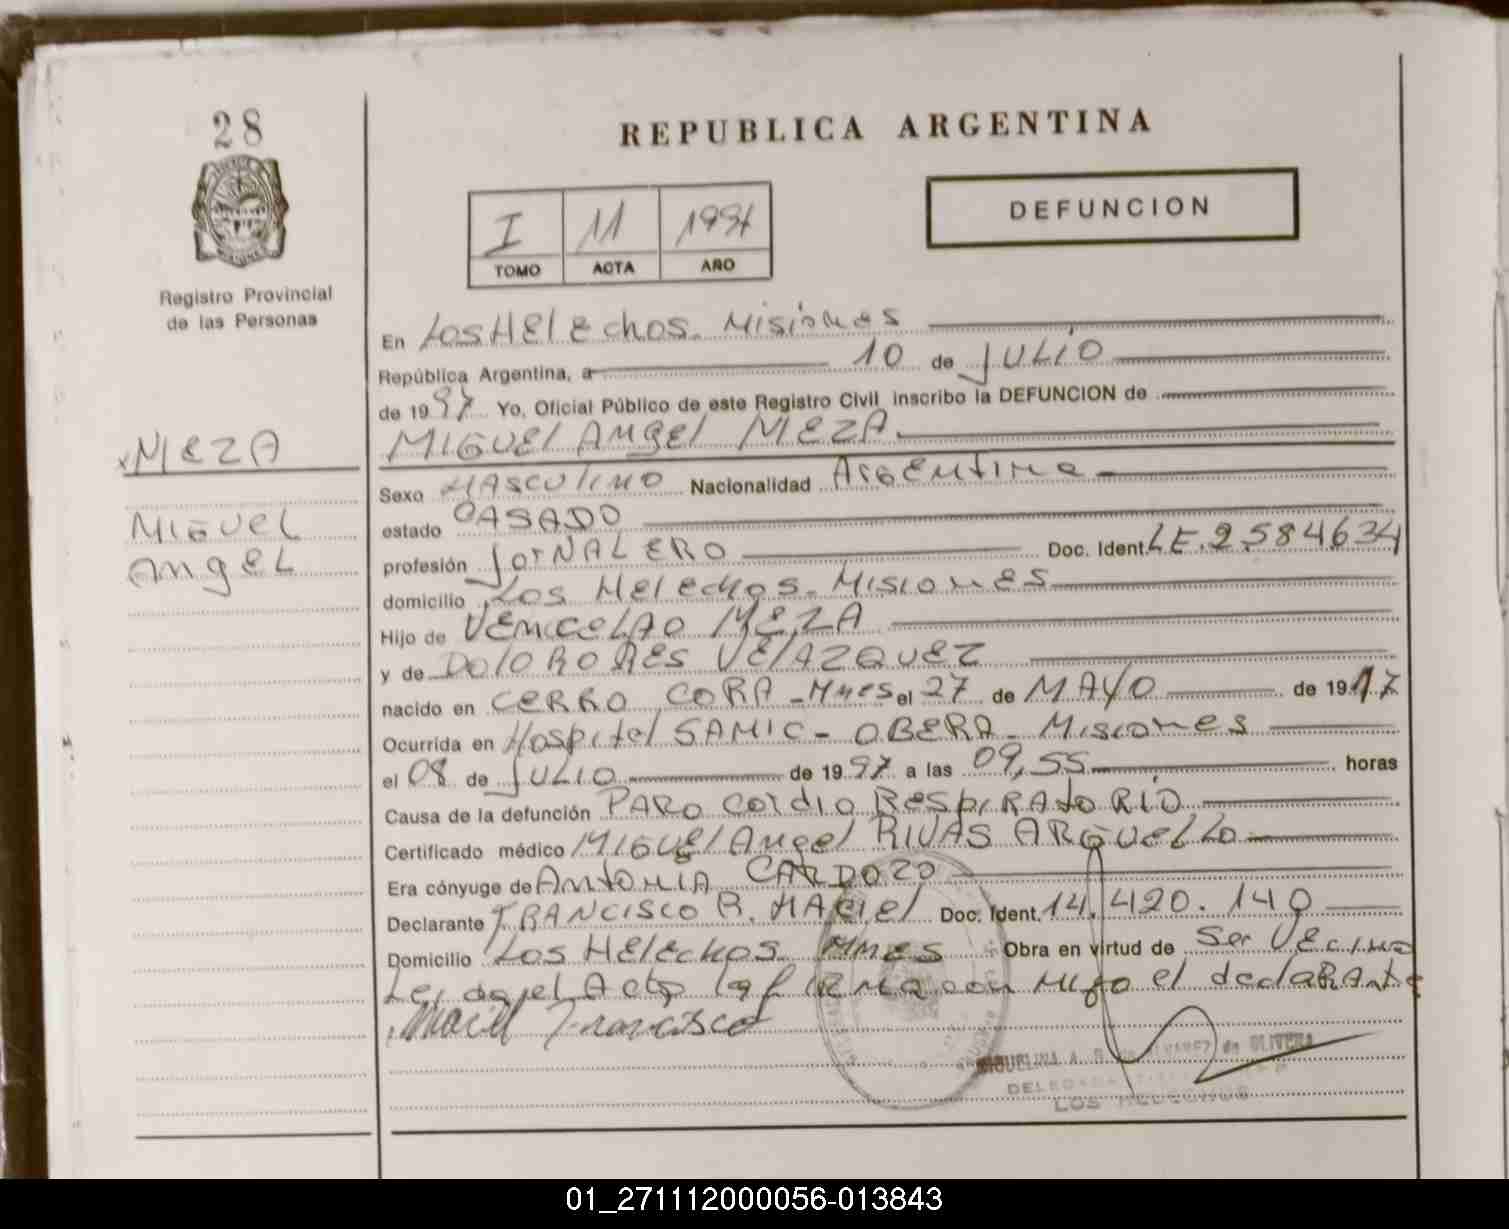 28
REPUBLICA ARGENTINA
DEFUNCION
I 11 1997
TOMO ACTA AÑO
Registro Provincial
de las Personas
En Los Helechos. Misiones
República Argentina, a 10 de JULIO
de 1997 Yo, Oficial Público de este Registro Civil inscribo la DEFUNCION de
MIGUEL ANGEL MEZA
MEZA
MIGUEL
ANGEL
Sexo MASCULINO Nacionalidad ARGENTINA
estado CASADO
profesión JORNALERO Doc. Ident. LE.2.584634
domicilio Los Helechos. Misiones
Hijo de VENICELAO MEZA
y de DOLORORES VELAZQUEZ
nacido en CERRO CORA - Mnes el 27 de MAYO de 1917
Ocurrida en Hospital SAMIC - OBERA - Misiones
el 08 de JULIO de 1997 a las 09,55 horas
Causa de la defunción PARO cardio RESPIRATORIO
Certificado médico MIGUEL Angel RIVAS ARGUELLO
Era cónyuge de ANTONIA CARDOZO
Declarante FRANCISCO R. MACIEL Doc. Ident. 14.420.140
Domicilio Los Helechos Mnes Obra en virtud de Ser Vecino
Leida el Acta la firma con migo el declarante
Maciel Francisco
MIGUELINA A. ALVAREZ de OLIVERA
DELEGADA TITULAR
LOS HELECHOS
01_271112000056-013843